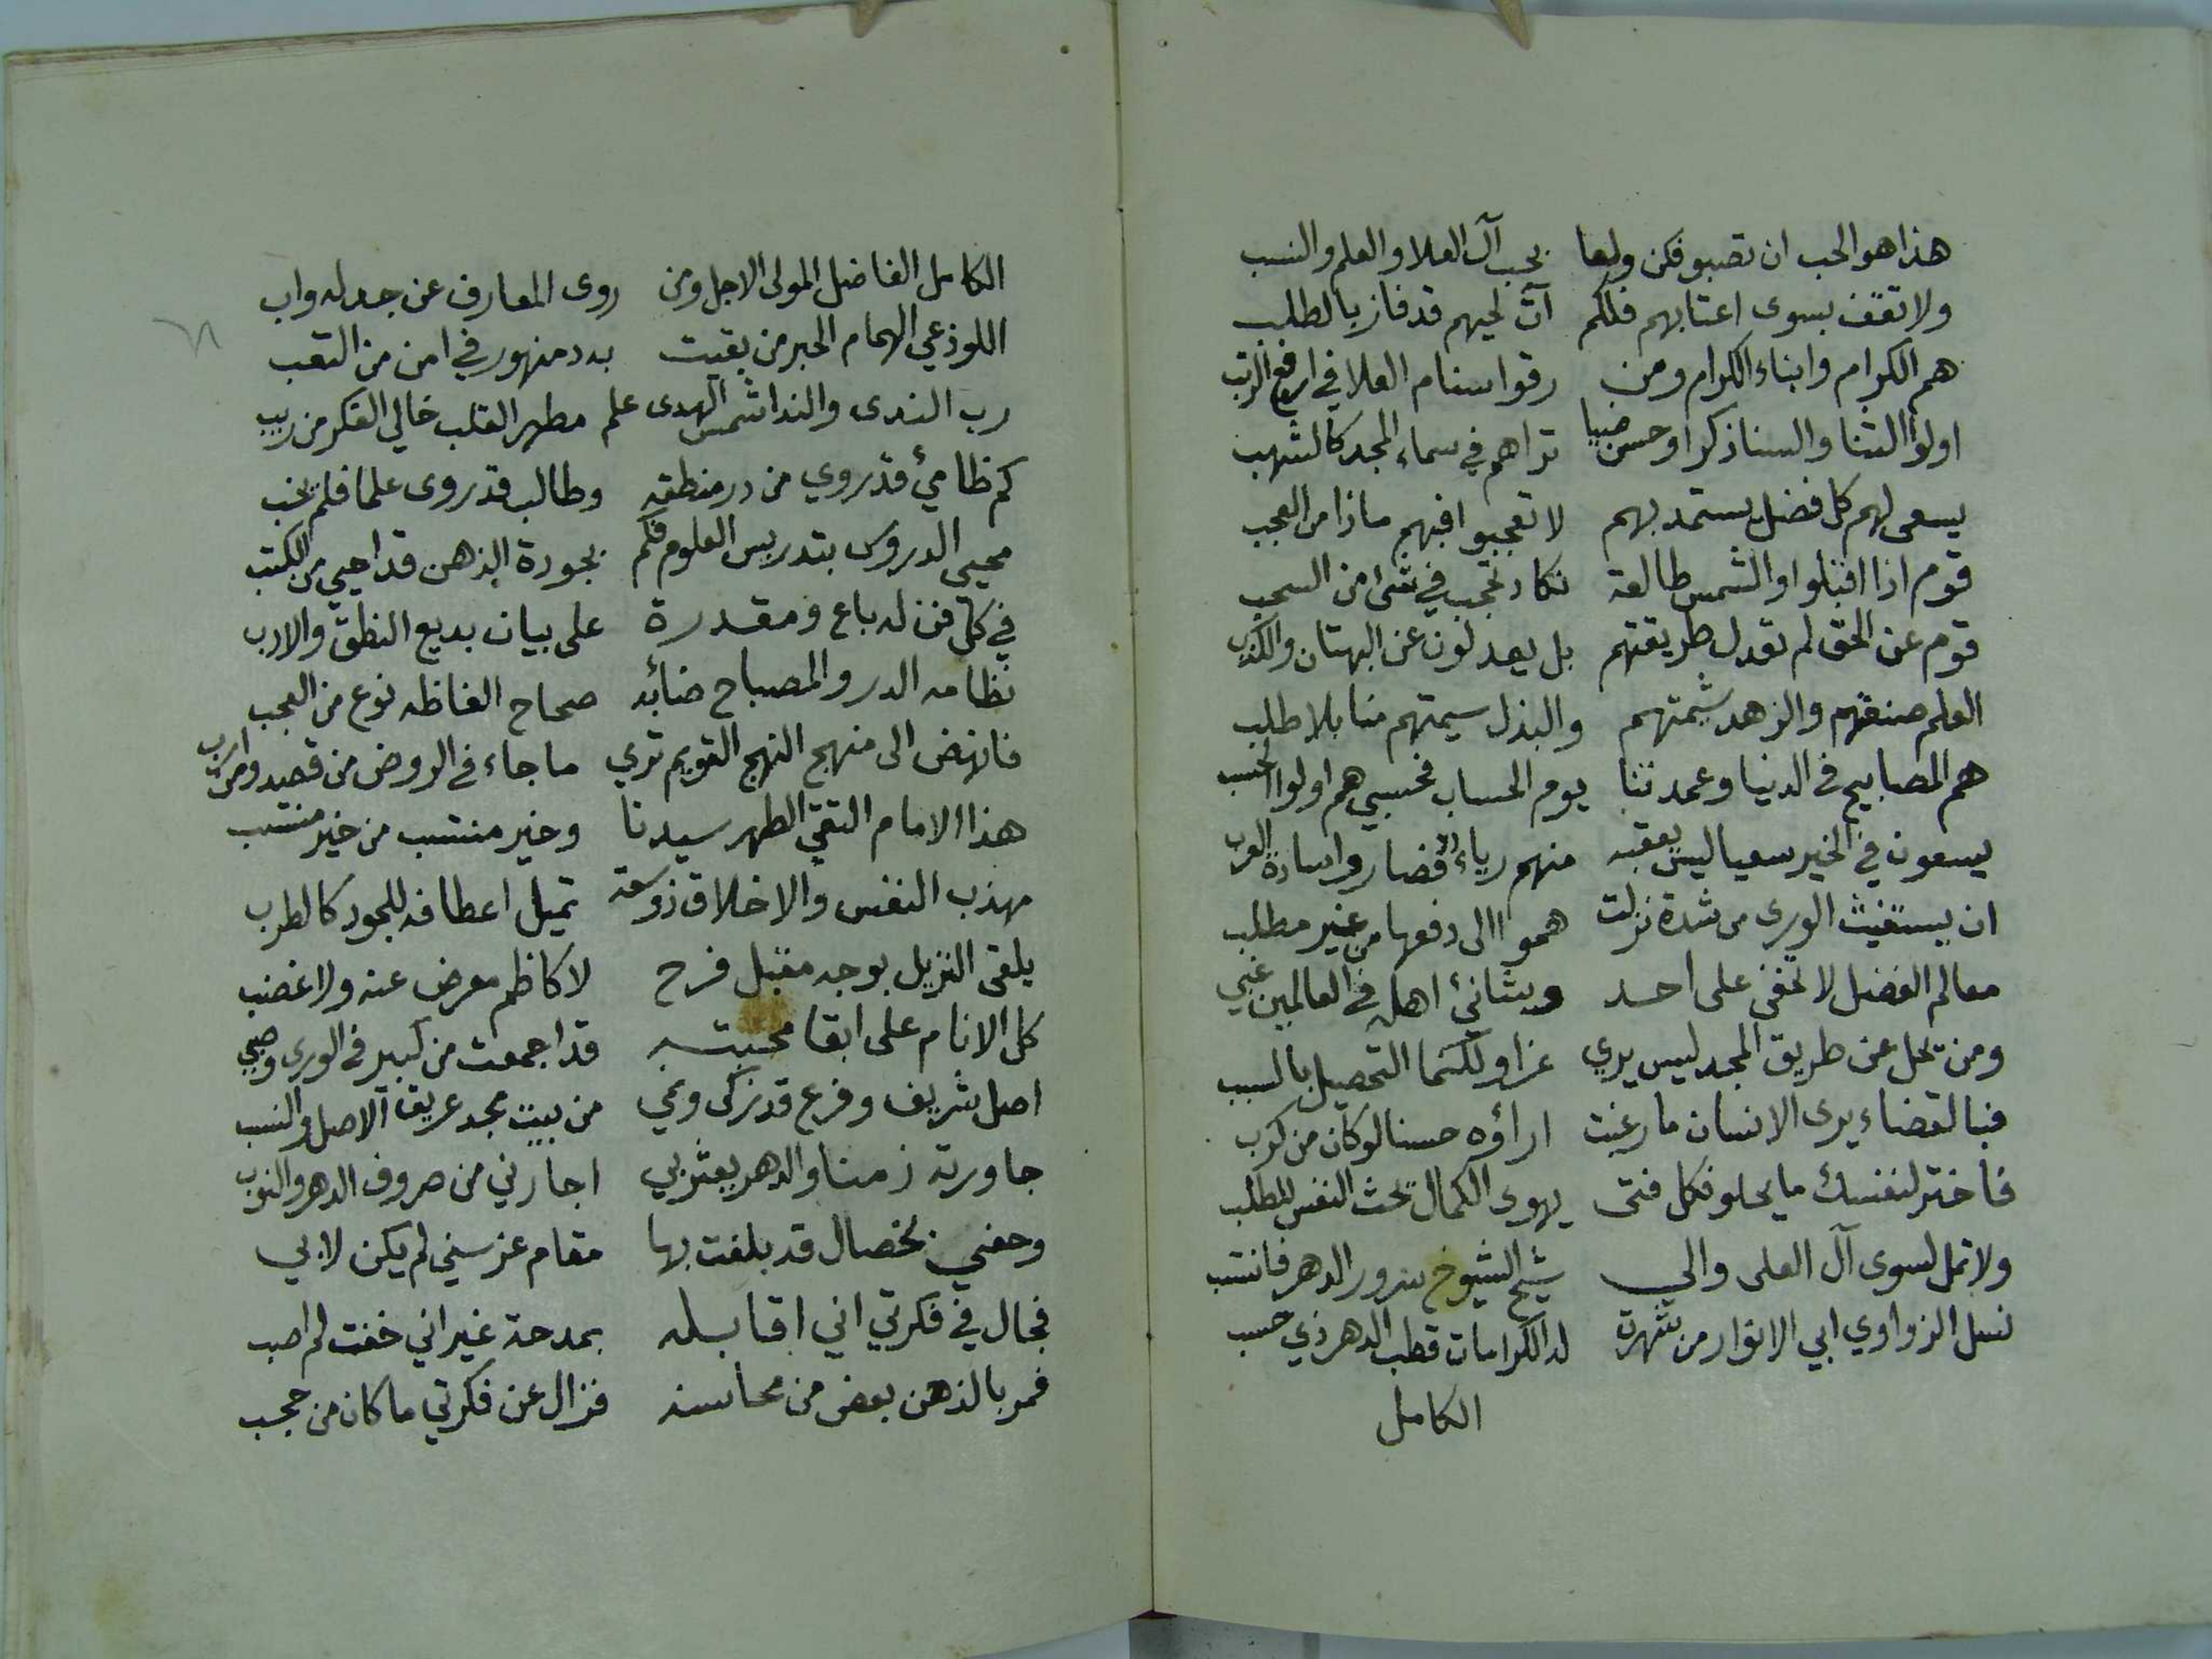 هذا هو الحب ان تصبو فكن ولعا بحب آل العلا والعلم والنسب
ولا تقف بسوى اعتابهم فلكم آت لحيهم قد فاز بالطلب
هم الكرام وابناء الكرام ومن رقوا سنام العلا في ارفع الرتب
اولوا الثنا والسنا ذكرا وحسن ضيا تراهم في سماء المجد كالشهب
يسعى لهم كل فضل يستمد بهم لا تعجبوا فبهم ماذا من العجب
قوم اذا اقبلوا والشمس طالعة تكاد تحجب في شئ من السحب
قوم عن الحق لم تعدل طريقتهم بل يعدلون عن البهتان والكذب
العلم صنعتهم والزهد شيمتهم والبذل سيمتهم منا بلا طلب
هم المصابيح في الدنيا وعمدتنا يوم الحساب فحسبي هم اولوا الحسب
يسعون في الخير سعيا ليس يعقبه منهم رياء فصاروا سادة العرب
ان يستغيث الورى من شدة نزلت هموا الى دفعها من غير مطلب
معالم الفضل لا تخفى على احد وشانئ اهله في العالمين غبي
ومن يحل عن طريق المجد ليس يري عزا ولكنما التحصيل بالسبب
فبالقضاء يرى الانسان ما رغبت اراؤه حسنا لو كان من كرب
فاختر لنفسك ما يحلو فكل فتى يهوى الكمال تحث النفس للطلب
ولا تمل لسوى آل العلى والي شيخ الشيوخ سرور الدهر فانتسب
نسل الزواوي ابي الانوار من شهرة له الكرامات قطب الدهر ذي حسب
الكامل
الكامل الفاضل المولى الاجل ومن روى المعارف عن جد له واب
اللوذعي الهمام الحبر من بقيت به دمنهور في امن من التعب
رب الندى والندا شمس الهدى علم مطهر القلب خالي الفكر من ريب
كم ظامئ قد روي من در منطقه وطالب قد روى علما فلم يخب
محيي الدروس بتدريس العلوم فكم بجودة الذهن قد احيي من الكتب
في كل فن له باع ومقدرة على بيان بديع النطق والادب
نظامه الدر والمصباح ضائه صحاح الفاظه نوع من العجب
فانهض الى منهج النهج القويم تري ما جاء في الروض من قصد ومن ارب
هذا الامام التقي الطهر سيدنا وخير منتسب من خير منتسب
مهذب النفس والاخلاق ذو سعة تميل اعطافه للجود كالطرب
يلقى النزيل بوجه مقبل فرح لا كاظم معرض عنه ولا غضب
كل الانام على ابقا محبته قد اجمعت من كبير في الورى وصبي
اصل شريف وفرع قد زكى ونمي من بيت مجد عريق الاصل والنسب
جاورته زمنا والدهر يعثر بي اجارني من صروف الدهر والنوب
وحفني بخصال قد بلغت بها مقام عز سني لم يكن لابي
فجال في فكرتي اني اقابله بمدحة غير اني خفت لم اصب
فمر بالذهن بعض من محاسنه فزال عن فكرتي ما كان من حجب